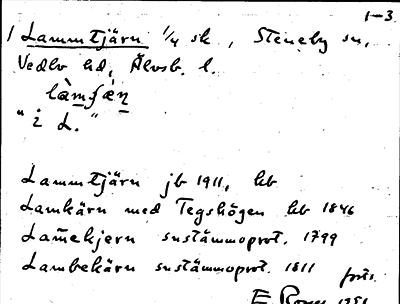 1-3
1 Lammtjärn 1/4 sk, Steneby sn,
Vedbo hd, Älvsb. l.
"i L."
Lammtjärn jb 1911, kb
Lamkärn med Tegshögen kb 1846
Lam̄ekjern sustämmoprot. 1799
Lambekärn sustämmoprot. 1811 forts.
E